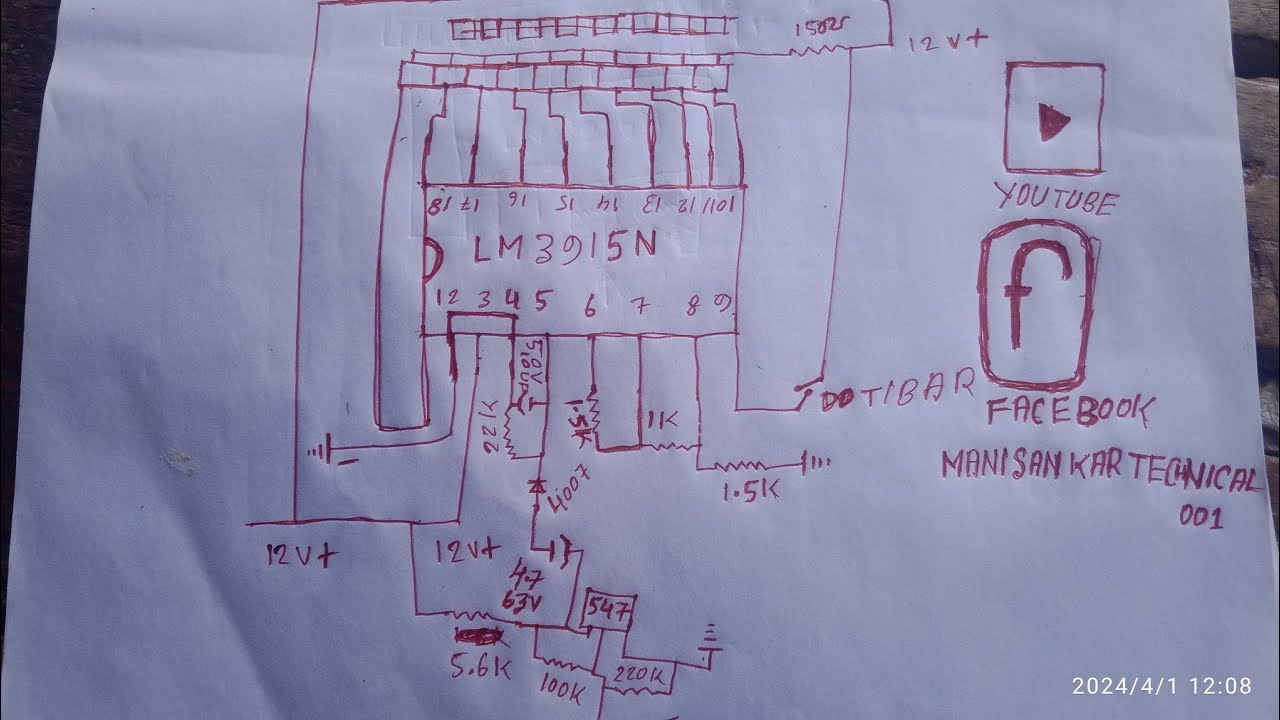 150Ω
12V+
18 17 16 15 14 13 12 11 10
YOUTUBE
LM3915N
1 2 3 4 5 6 7 8 9
f
50V
22K
1.5K
1K
DOTIBAR
FACEBOOK
1.5K
MANISANKAR TECHNICAL
001
4007
12V+
12V+
4.7
63V
547
5.6K
100K
220K
2024/4/1 12:08